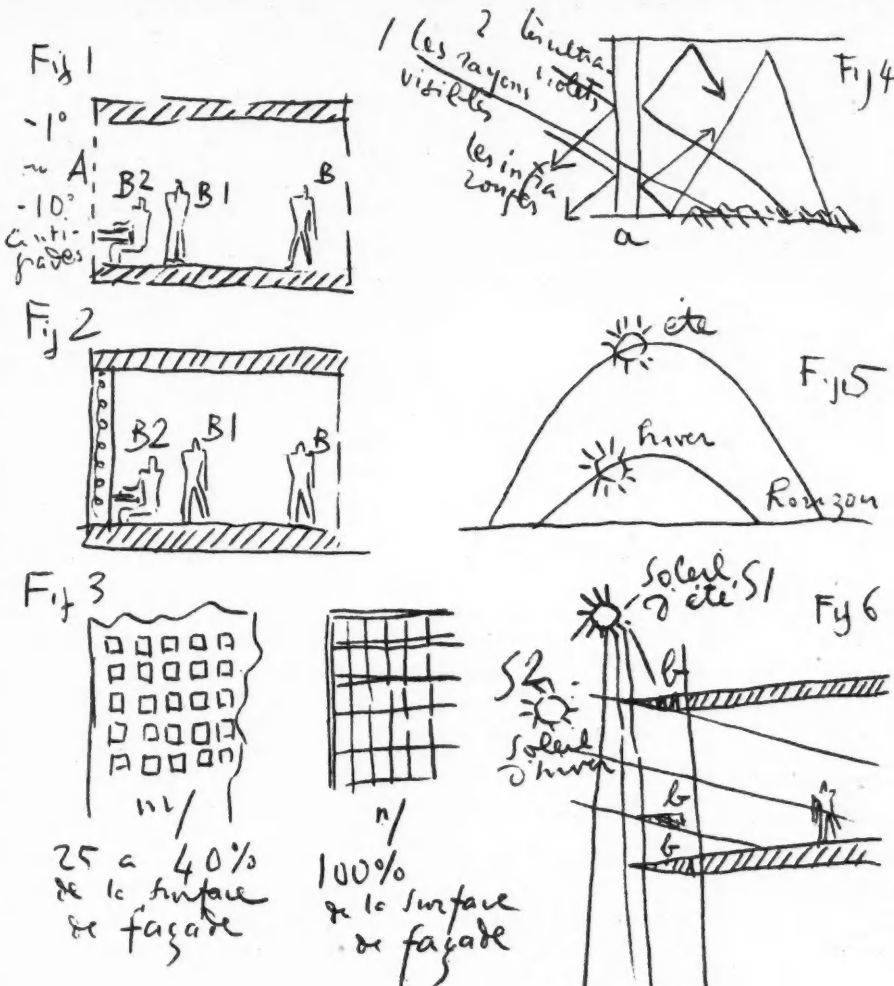 Fig 1
-1°
A
-10°
centi-
grades
B2 B1 B
Fig 2
B2 B1 B
Fig 3
m/
25 a 40%
de la surface
de façade
n/
100%
de la surface
de façade
1 les rayons
visibles
2 les ultra-
violets
les infra
rouges
a
Fig 4
été
hiver
horizon
Fig 5
soleil
d'été S1
Fig 6
S2
soleil
d'hiver
b
b
b